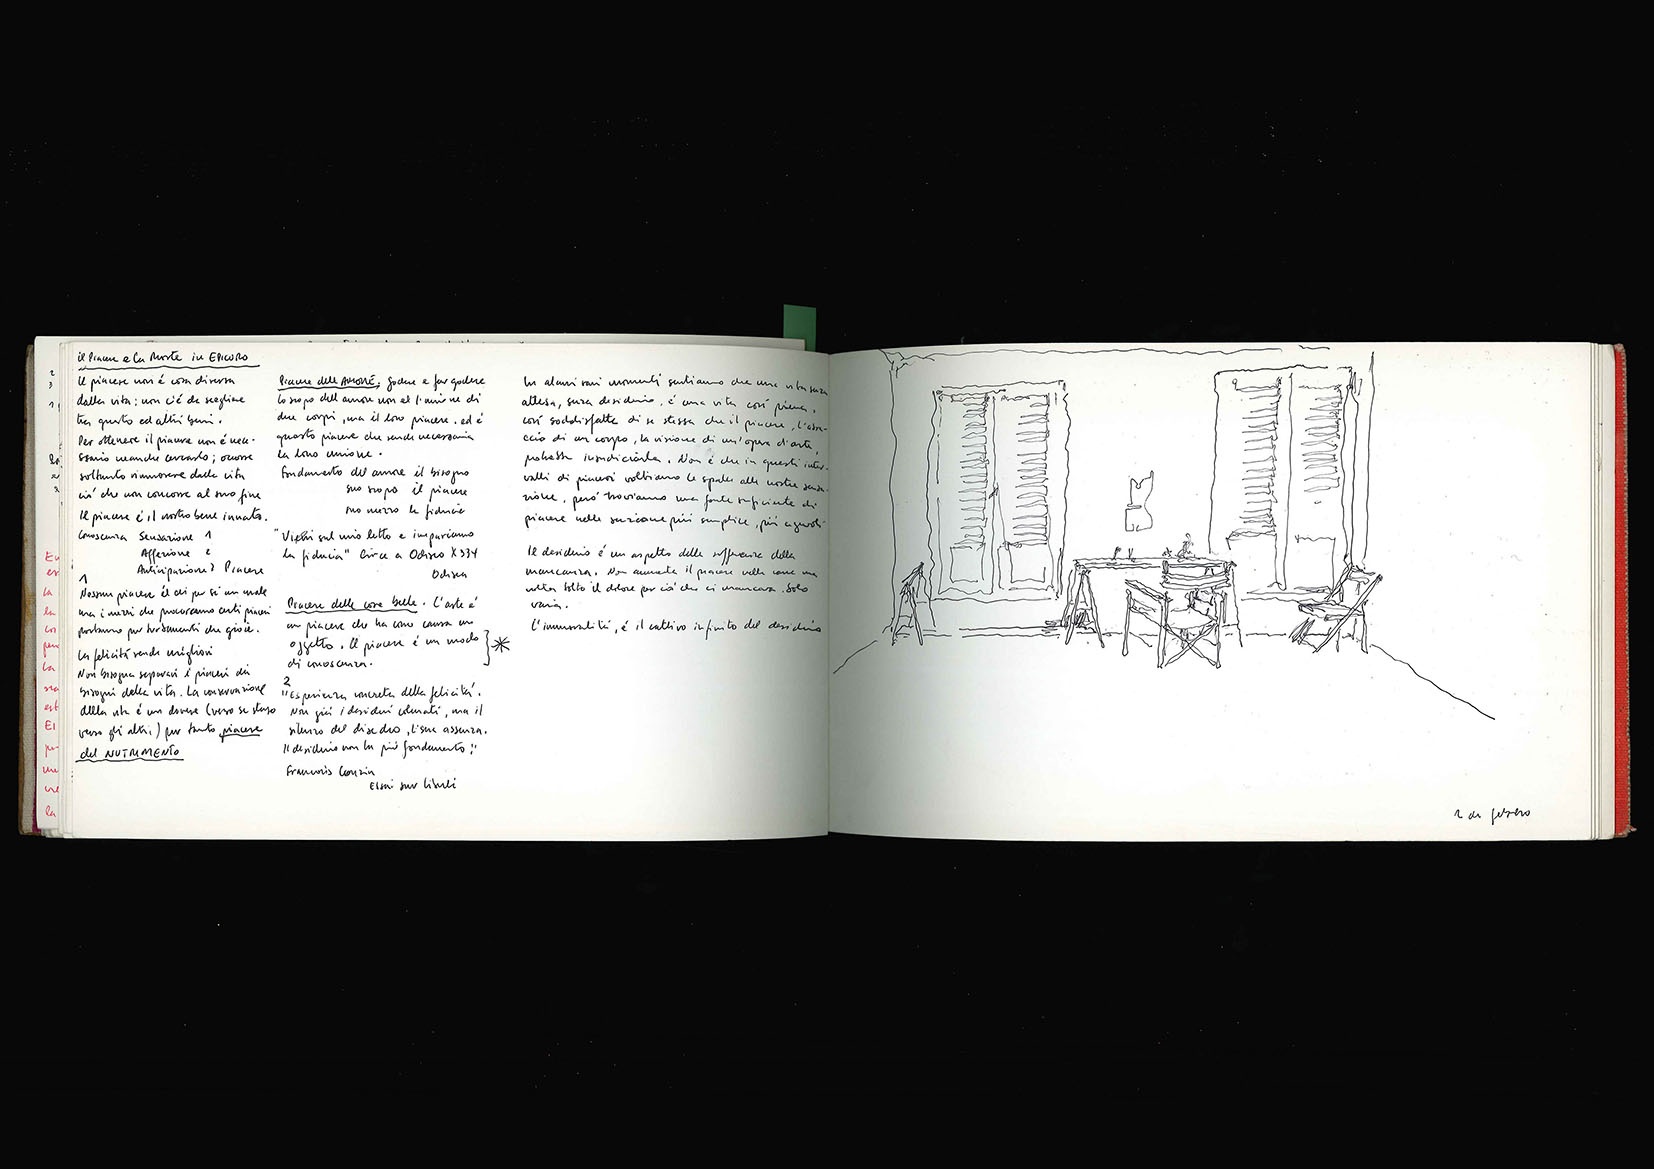 il Piacere e la Morte in EPICURO
Il piacere non é cosa diversa
dalla vita: non c'é da scegliere
tra questo ed altri beni.
Per ottenere il piacere non é nece-
ssario neanche cercarlo; occorre
soltanto rimuovere dalla vita
ció che non concorre al suo fine
Il piacere é il nostro bene innato.
Conoscenza Sensazione 1
Affezione 2
Anticipazione 3 Piacere
1
Nessun piacere é di per se un male
ma i mezzi che procurano certi piaceri
portano piu tordamenti che gioie.
La felicitá rende migliori
Non bisogna separare i piaceri dai
bisogni della vita. La conservazione
della vita é un dovere (verso se stesso
verso gli altri) per tanto piacere
del NUTRIMENTO
Piacere dell AMORE; godere e far godere
lo scopo dell amore non é l'unione di
due corpi, ma il loro piacere. ed é
questo piacere che rende necessaria
la loro unione.
Fondamento del amore il bisogno
suo scopo il piacere
suo mezzo la fiducia
"Vieni sul mio letto e impariamo
la fiducia" Circe a Odisseo X 334
Odissea
Piacere delle cose belle. L'arte é
un piacere che ha come causa un
oggetto. Il piacere é un modo
di conoscenza.
2
"Esperienza concreta della felicitá.
Non giá i desideri colmati, ma il
silenzo del disedeo, l'isue assenza.
Il desiderio non ha piú fondamento;"
Francois
Essai sur
In alcuni rari momenti sentiamo che una vita senza
attesa, senza desiderio, é una vita cosí piena,
cosí soddisfatta di se stessa che il piacere, l'abbra-
ccio di un corpo, la visione di un'opera d'arte,
potesse insudiciarla. Non é che in questi inter-
valli di piaceri voltiamo le spalle alle nostre sensa-
zione, peró troviamo una fonte suficiente di
piacere nelle sensazione piú semplice, piú
Il desiderio é un aspetto della sofferenza della
mancanza. Non aumenta il piacere nella carne una
volta tolto il dolore per ció che ci mancava. Solo
varia.
L'immoralitá, é il cattivo infinito del desiderio
2 de febrero